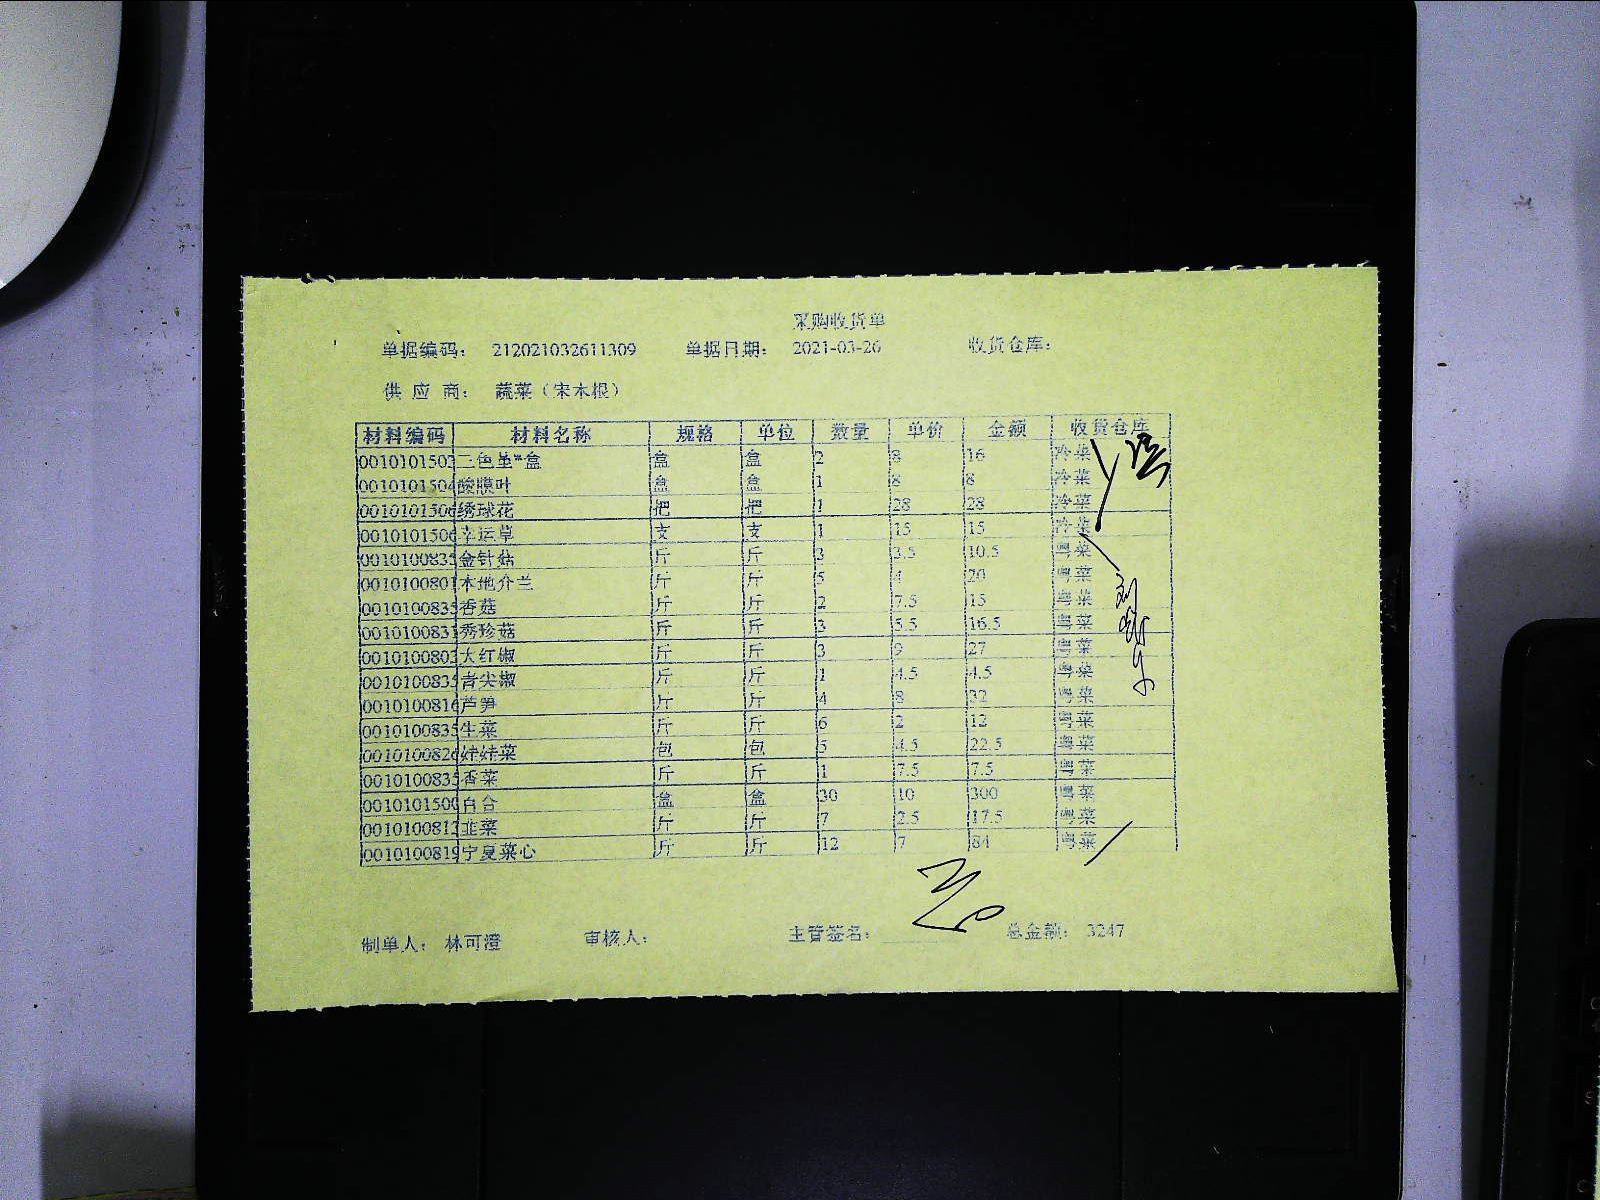 采购收货单
单据编码： 212021032611309 单据日期： 2021-03-26 收货仓库：
供 应 商： 蔬菜（宋木根）
材料编码 材料名称 规格 单位 数量 单价 金额 收货仓库
0010101503 三色堇*盒 盒 盒 2 8 16 冷菜
0010101504 酸膜叶 盒 盒 1 8 8 冷菜
0010101506 绣球花 把 把 1 28 28 冷菜
0010101506 幸运草 支 支 1 15 15 冷菜
0010100835 金针菇 斤 斤 3 3.5 10.5 粤菜
0010100801 本地介兰 斤 斤 5 4 20 粤菜
0010100835 香菇 斤 斤 2 7.5 15 粤菜
0010100831 秀珍菇 斤 斤 3 5.5 16.5 粤菜
0010100803 大红椒 斤 斤 3 9 27 粤菜
0010100835 青尖椒 斤 斤 1 4.5 4.5 粤菜
0010100816 芦笋 斤 斤 4 8 32 粤菜
0010100835 生菜 斤 斤 6 2 12 粤菜
0010100826 娃娃菜 包 包 5 4.5 22.5 粤菜
0010100835 香菜 斤 斤 1 7.5 7.5 粤菜
0010101500 百合 盒 盒 30 10 300 粤菜
0010100812 韭菜 斤 斤 7 2.5 17.5 粤菜
0010100819 宁夏菜心 斤 斤 12 7 84 粤菜
制单人： 林可澄 审核人： 主管签名： 总金额： 3247